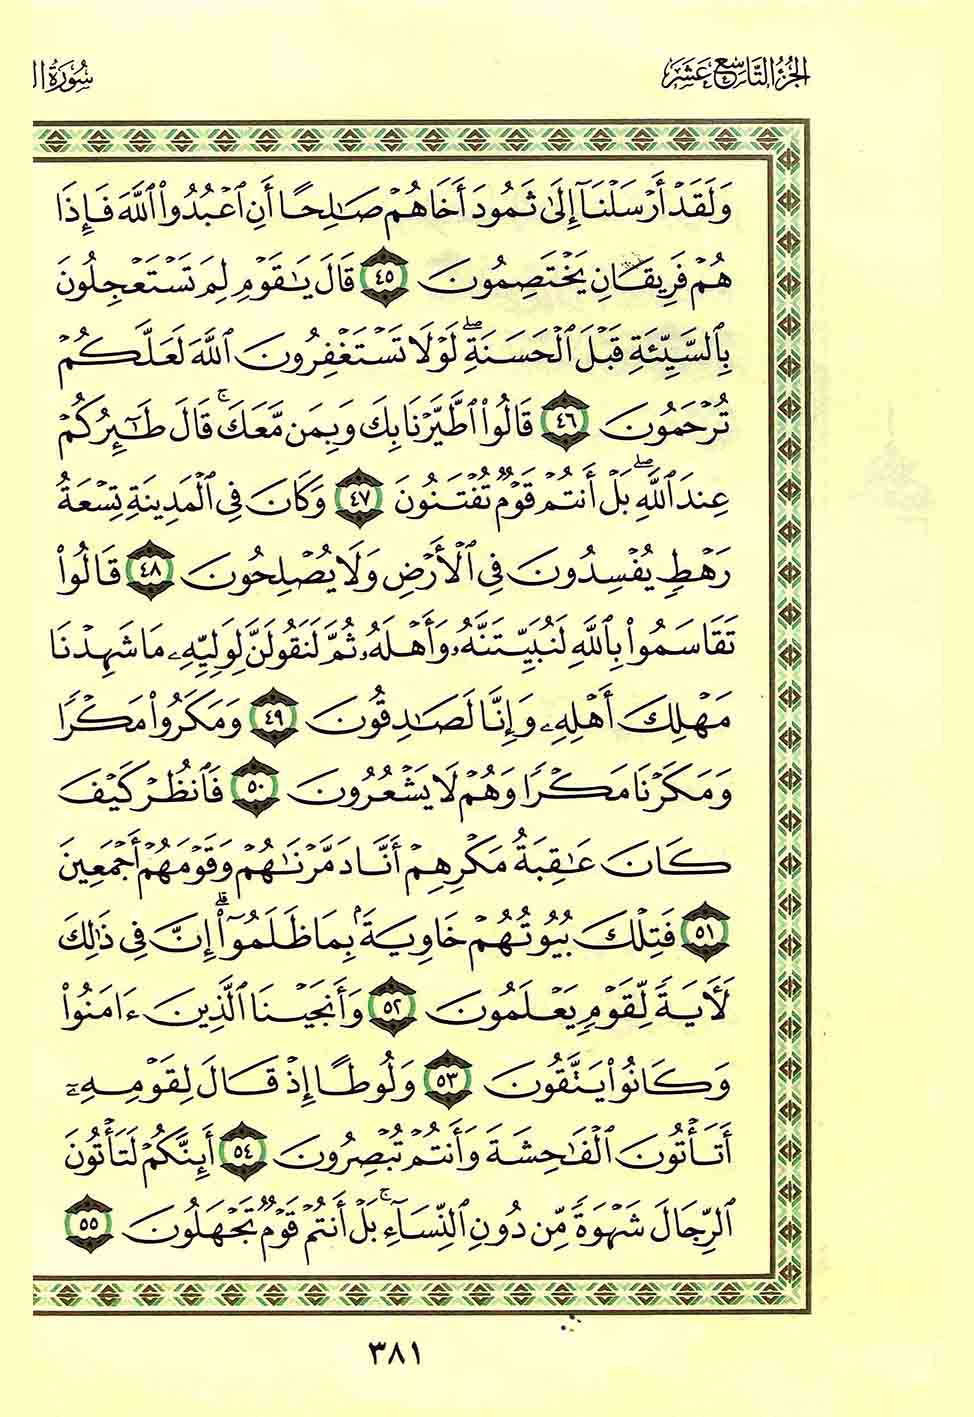 الجزء التاسع عشر
سورة ال
وَلَقَدۡ أَرۡسَلۡنَآ إِلَىٰ ثَمُودَ أَخَاهُمۡ صَٰلِحًا أَنِ ٱعۡبُدُواْ ٱللَّهَ فَإِذَا
هُمۡ فَرِيقَانِ يَخۡتَصِمُونَ ٤٥ قَالَ يَٰقَوۡمِ لِمَ تَسۡتَعۡجِلُونَ
بِٱلسَّيِّئَةِ قَبۡلَ ٱلۡحَسَنَةِۖ لَوۡلَا تَسۡتَغۡفِرُونَ ٱللَّهَ لَعَلَّكُمۡ
تُرۡحَمُونَ ٤٦ قَالُواْ ٱطَّيَّرۡنَا بِكَ وَبِمَن مَّعَكَۚ قَالَ طَٰٓئِرُكُمۡ
عِندَ ٱللَّهِۖ بَلۡ أَنتُمۡ قَوۡمٞ تُفۡتَنُونَ ٤٧ وَكَانَ فِي ٱلۡمَدِينَةِ تِسۡعَةُ
رَهۡطٖ يُفۡسِدُونَ فِي ٱلۡأَرۡضِ وَلَا يُصۡلِحُونَ ٤٨ قَالُواْ
تَقَاسَمُواْ بِٱللَّهِ لَنُبَيِّتَنَّهُۥ وَأَهۡلَهُۥ ثُمَّ لَنَقُولَنَّ لِوَلِيِّهِۦ مَا شَهِدۡنَا
مَهۡلِكَ أَهۡلِهِۦ وَإِنَّا لَصَٰدِقُونَ ٤٩ وَمَكَرُواْ مَكۡرٗا
وَمَكَرۡنَا مَكۡرٗا وَهُمۡ لَا يَشۡعُرُونَ ٥٠ فَٱنظُرۡ كَيۡفَ
كَانَ عَٰقِبَةُ مَكۡرِهِمۡ أَنَّا دَمَّرۡنَٰهُمۡ وَقَوۡمَهُمۡ أَجۡمَعِينَ
٥١ فَتِلۡكَ بُيُوتُهُمۡ خَاوِيَةَۢ بِمَا ظَلَمُوٓاْۗ إِنَّ فِي ذَٰلِكَ
لَأٓيَةٗ لِّقَوۡمٖ يَعۡلَمُونَ ٥٢ وَأَنجَيۡنَا ٱلَّذِينَ ءَامَنُواْ
وَكَانُواْ يَتَّقُونَ ٥٣ وَلُوطًا إِذۡ قَالَ لِقَوۡمِهِۦٓ
أَتَأۡتُونَ ٱلۡفَٰحِشَةَ وَأَنتُمۡ تُبۡصِرُونَ ٥٤ أَئِنَّكُمۡ لَتَأۡتُونَ
ٱلرِّجَالَ شَهۡوَةٗ مِّن دُونِ ٱلنِّسَآءِۚ بَلۡ أَنتُمۡ قَوۡمٞ تَجۡهَلُونَ ٥٥
٣٨١